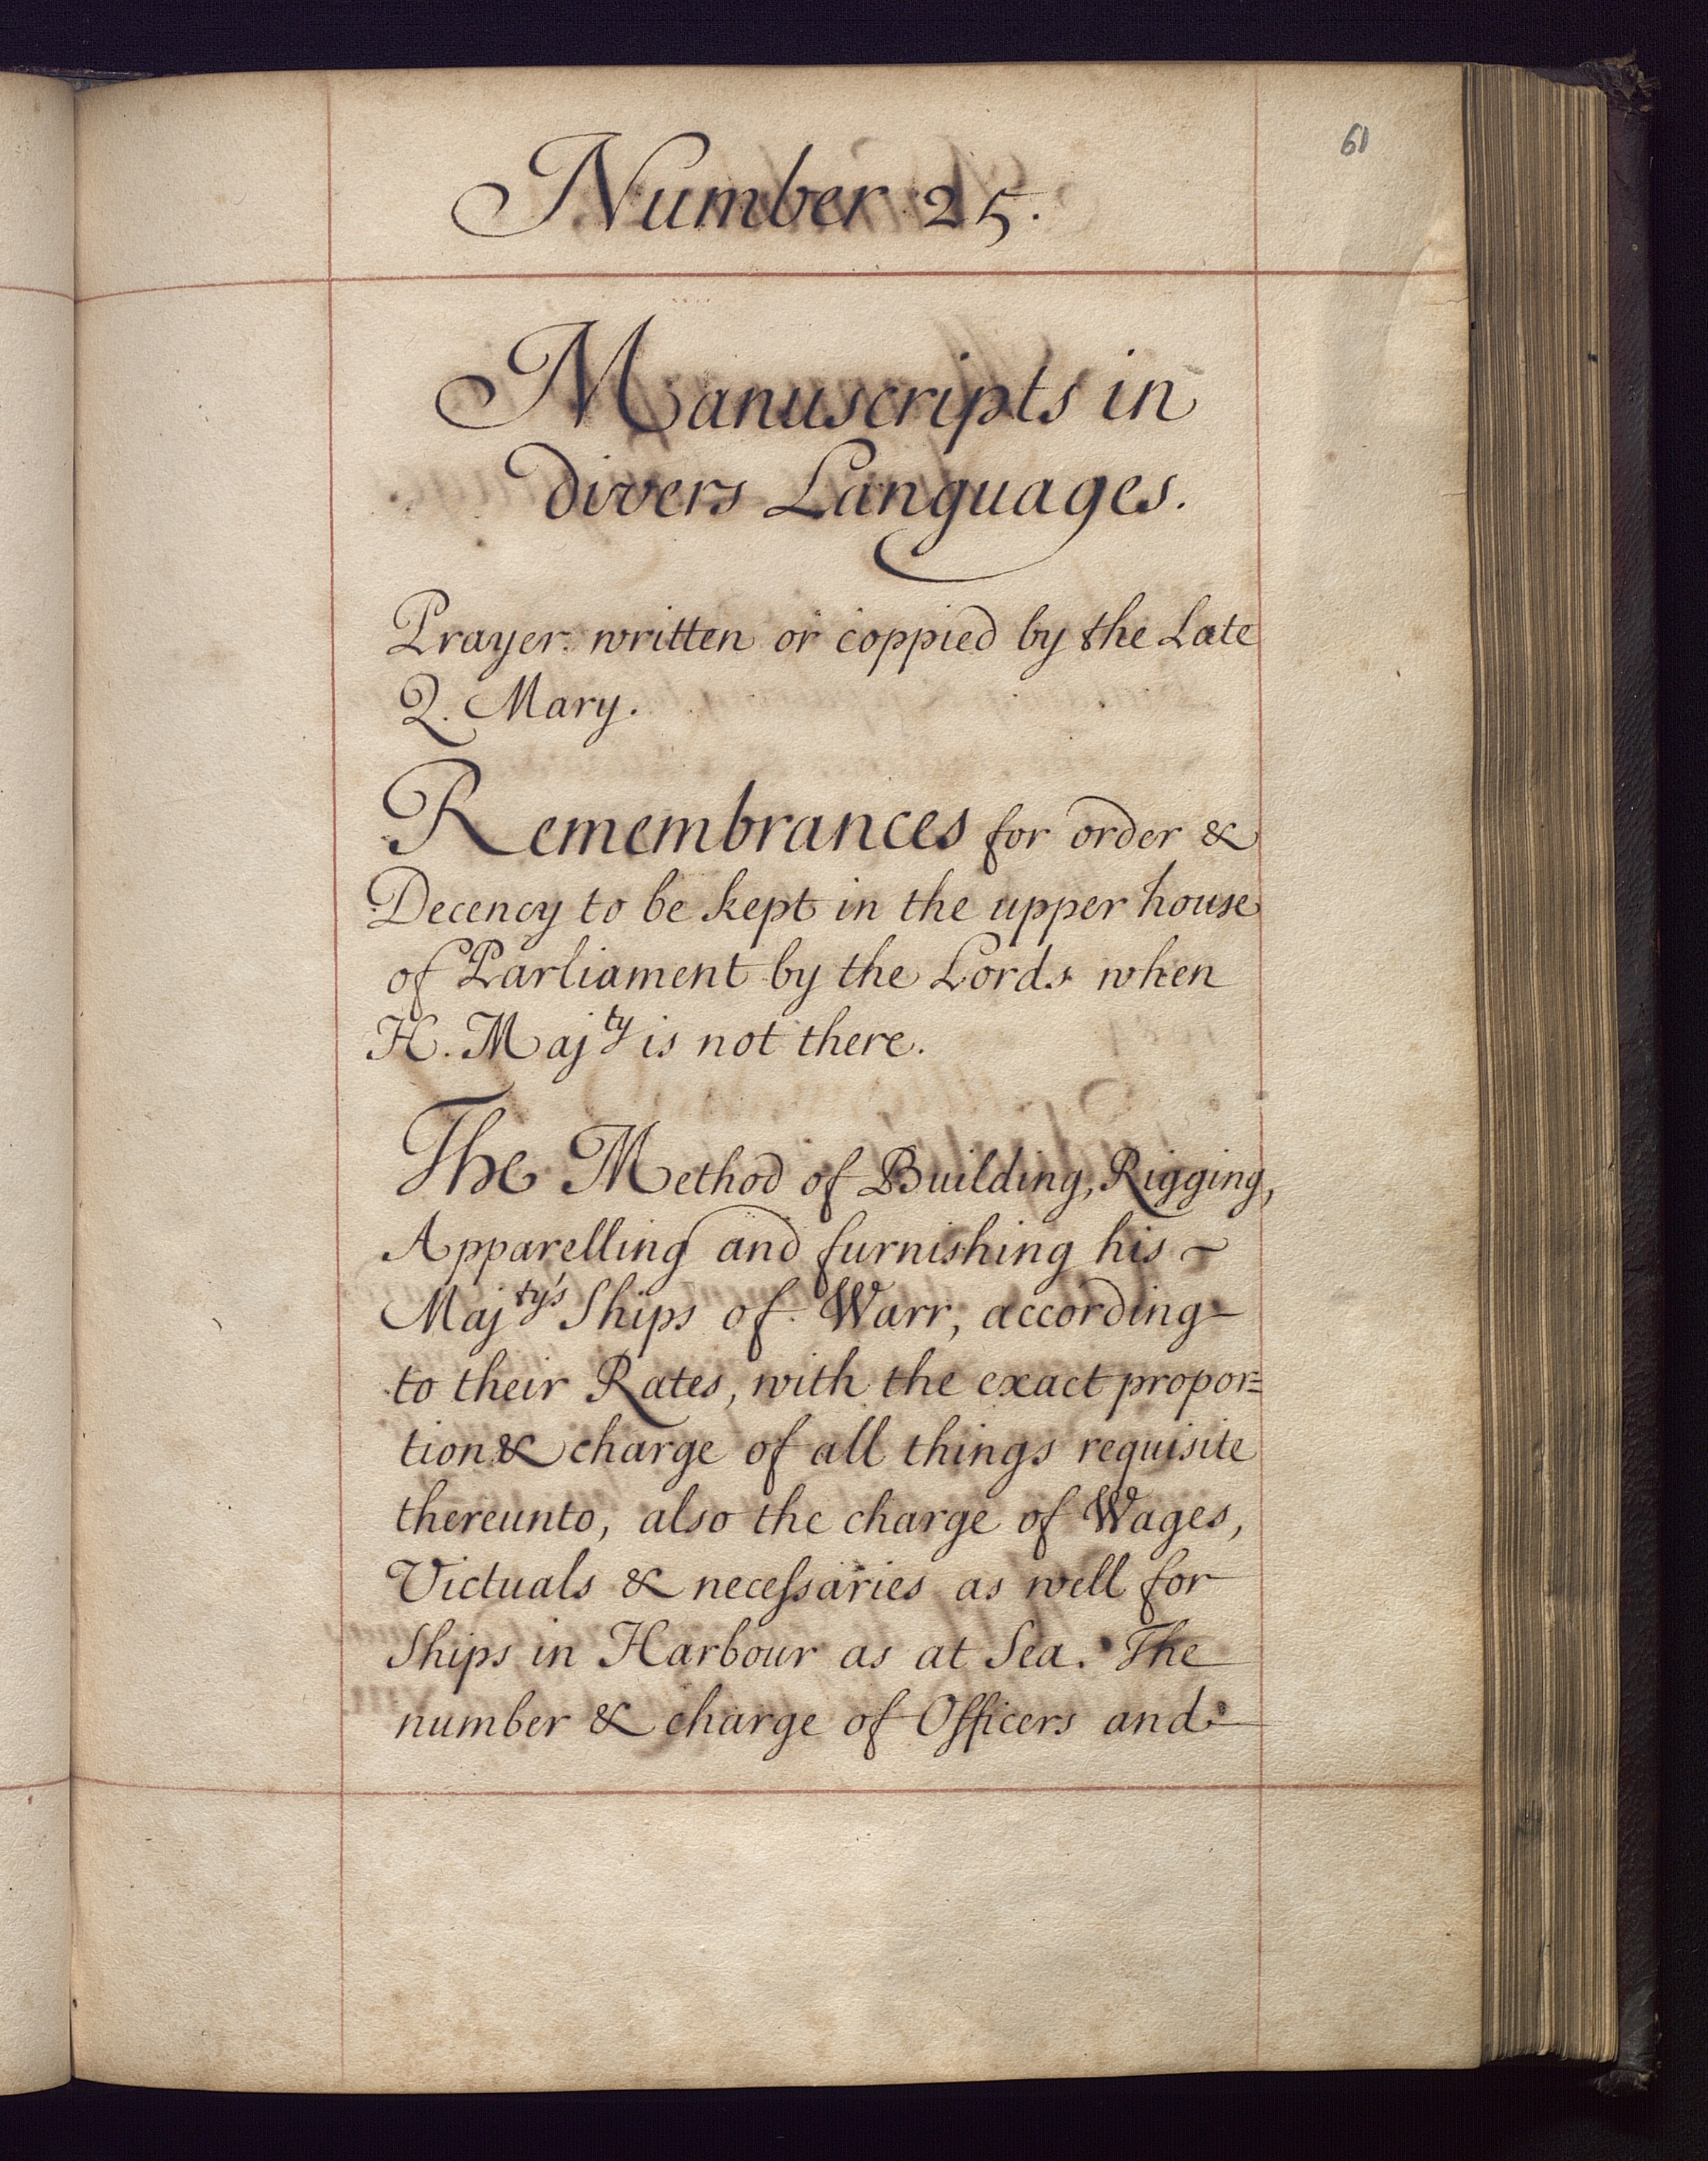 61
Number 25.
Manuscripts in
divers Languages.
Prayer written or coppied by the Late
Q. Mary.
Remembrances for order &
Decency to be kept in the upper house
of Parliament by the Lords when
H. Maj^ty is not there.
The Method of Building, Rigging,
Apparelling and furnishing his ~
Maj^ty's Ships of Warr, according
to their Rates, with the exact propor=
tion & charge of all things requisite
thereunto, also the charge of Wages,
Victuals & neceſsaries as well for
Ships in Harbour as at Sea. The
number & charge of Officers and